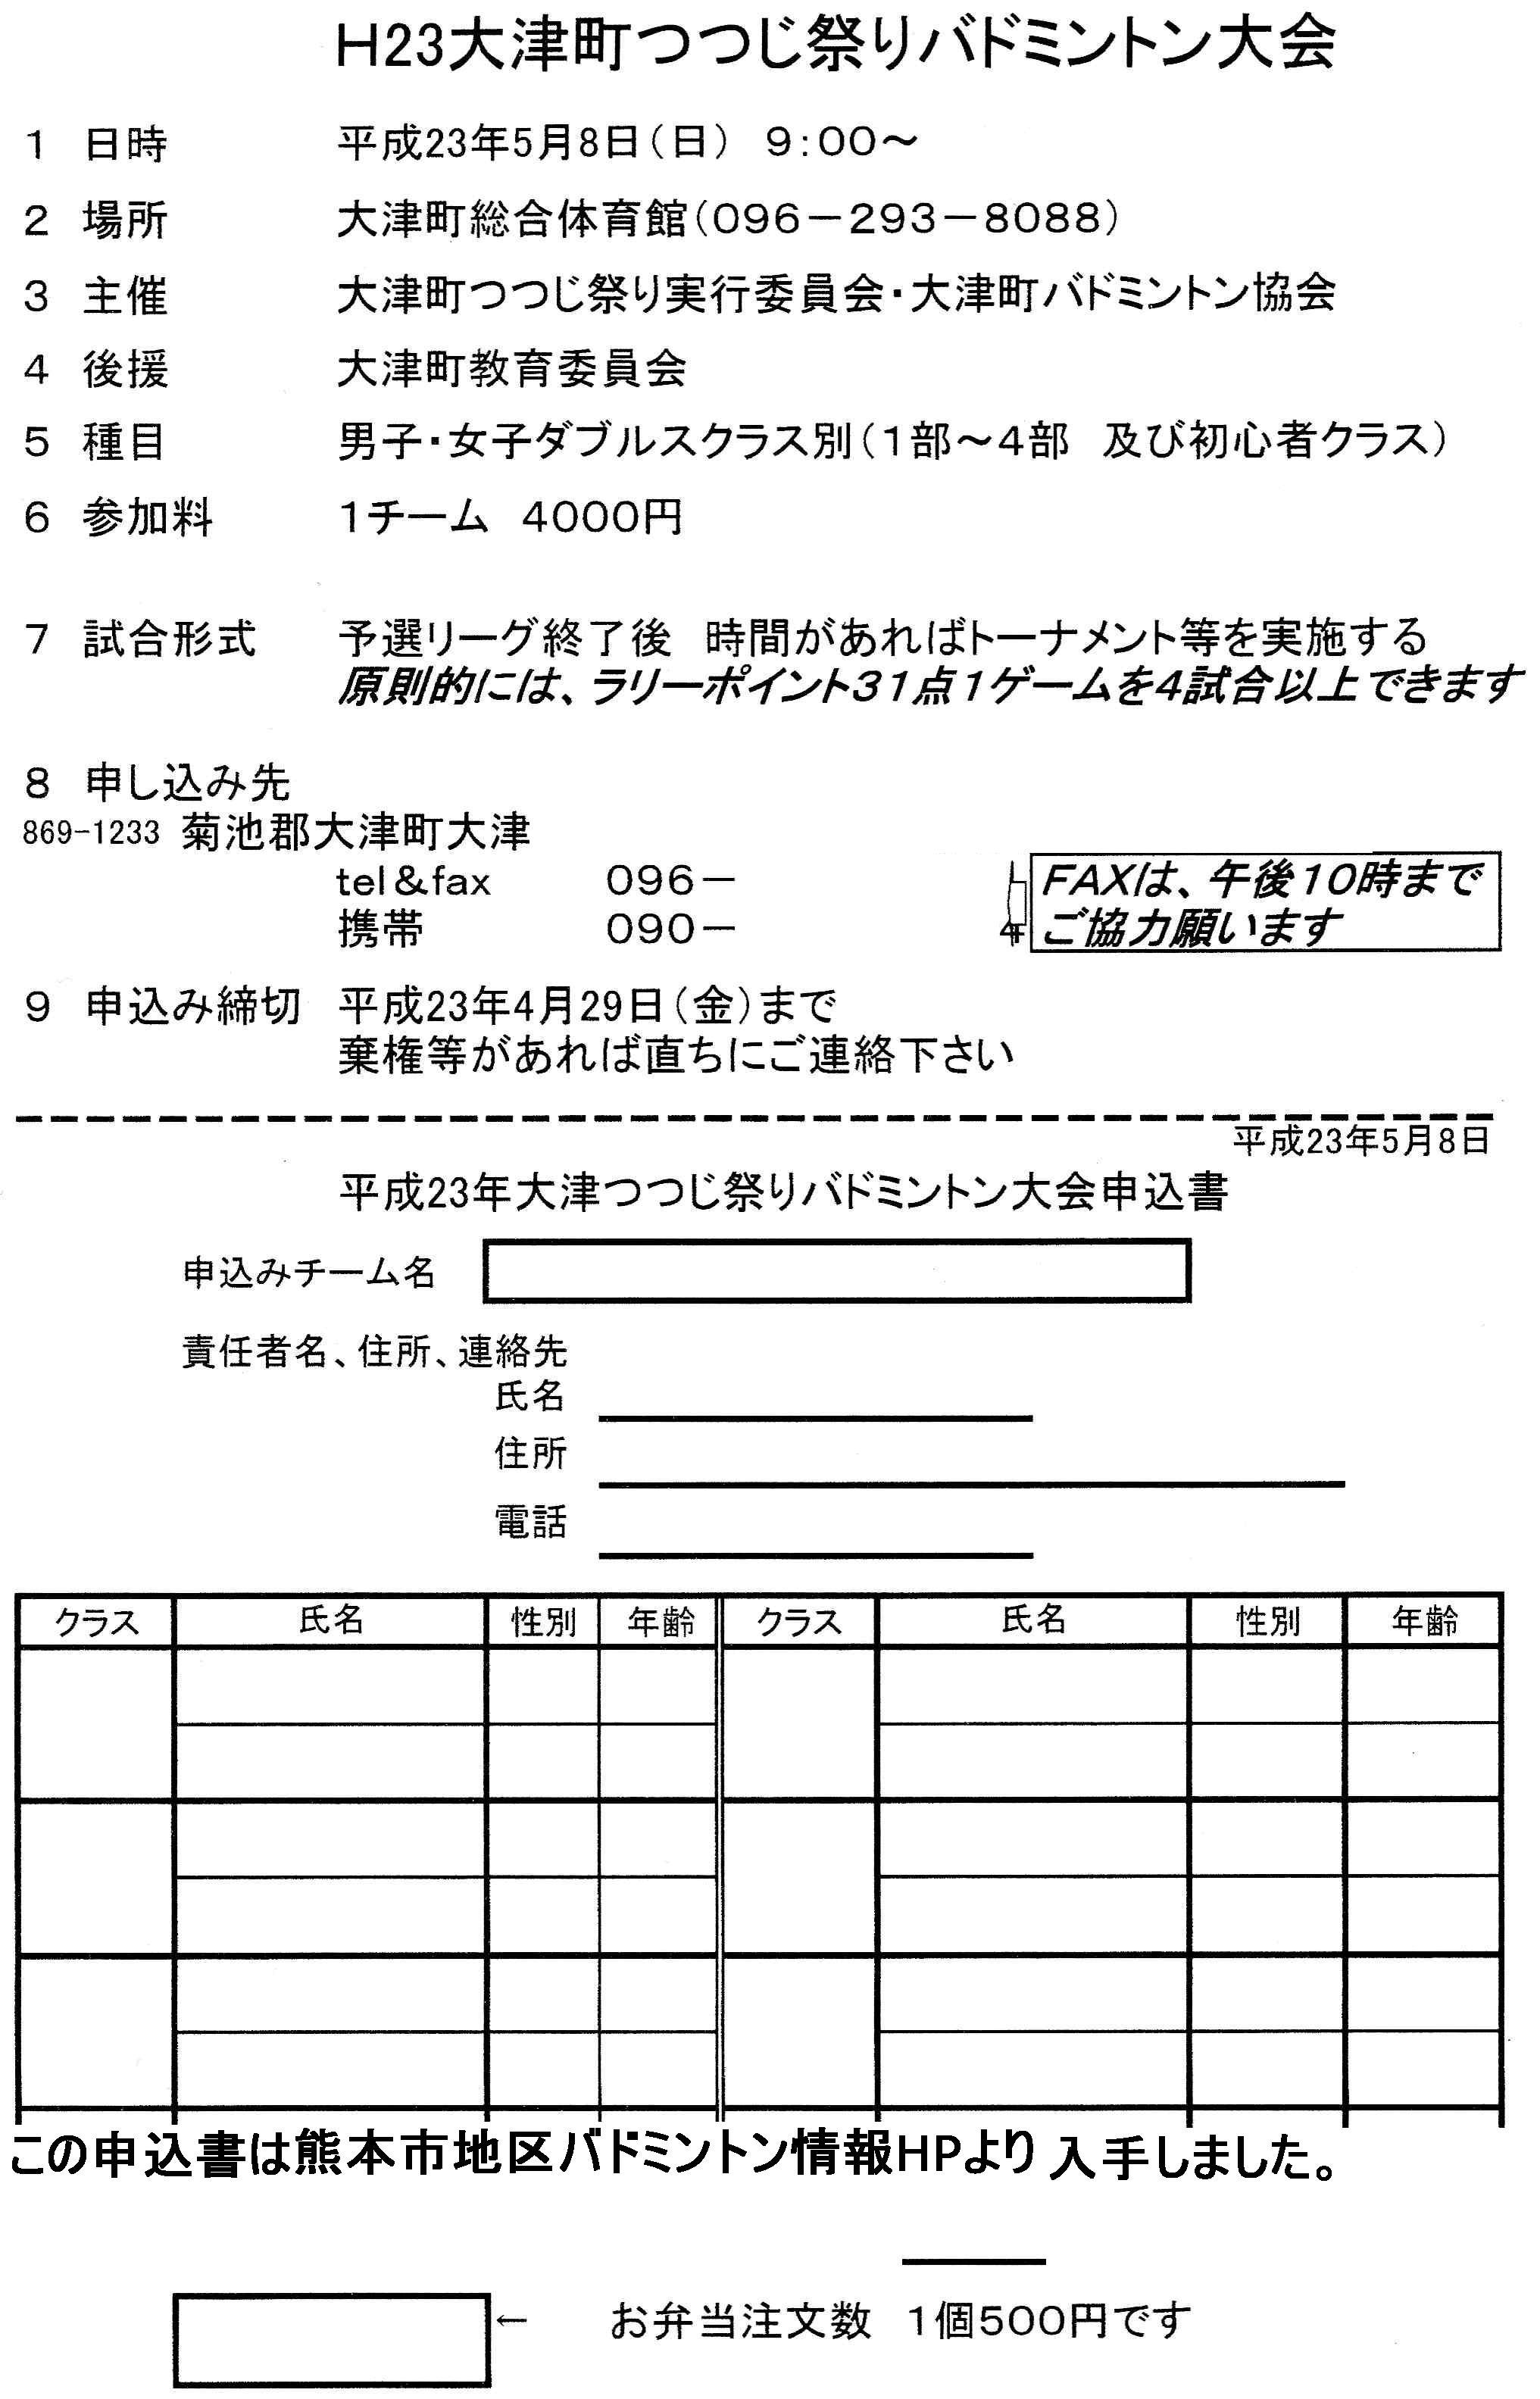 H23大津町つつじ祭りバドミントン大会
1 日時 平成23年5月8日(日) 9:00～
2 場所 大津町総合体育館(096－293－8088)
3 主催 大津町つつじ祭り実行委員会・大津町バドミントン協会
4 後援 大津町教育委員会
5 種目 男子・女子ダブルスクラス別(1部～4部 及び初心者クラス)
6 参加料 1チーム 4000円
7 試合形式 予選リーグ終了後 時間があればトーナメント等を実施する
原則的には、ラリーポイント31点1ゲームを4試合以上できます
8 申し込み先
869-1233 菊池郡大津町大津
tel&fax 096－
携帯 090－
FAXは、午後10時まで
ご協力願います
9 申込み締切 平成23年4月29日(金)まで
棄権等があれば直ちにご連絡下さい
平成23年5月8日
平成23年大津つつじ祭りバドミントン大会申込書
申込みチーム名
責任者名、住所、連絡先
氏名
住所
電話
クラス 氏名 性別 年齢 クラス 氏名 性別 年齢
この申込書は熊本市地区バドミントン情報HPより入手しました。
← お弁当注文数 1個500円です